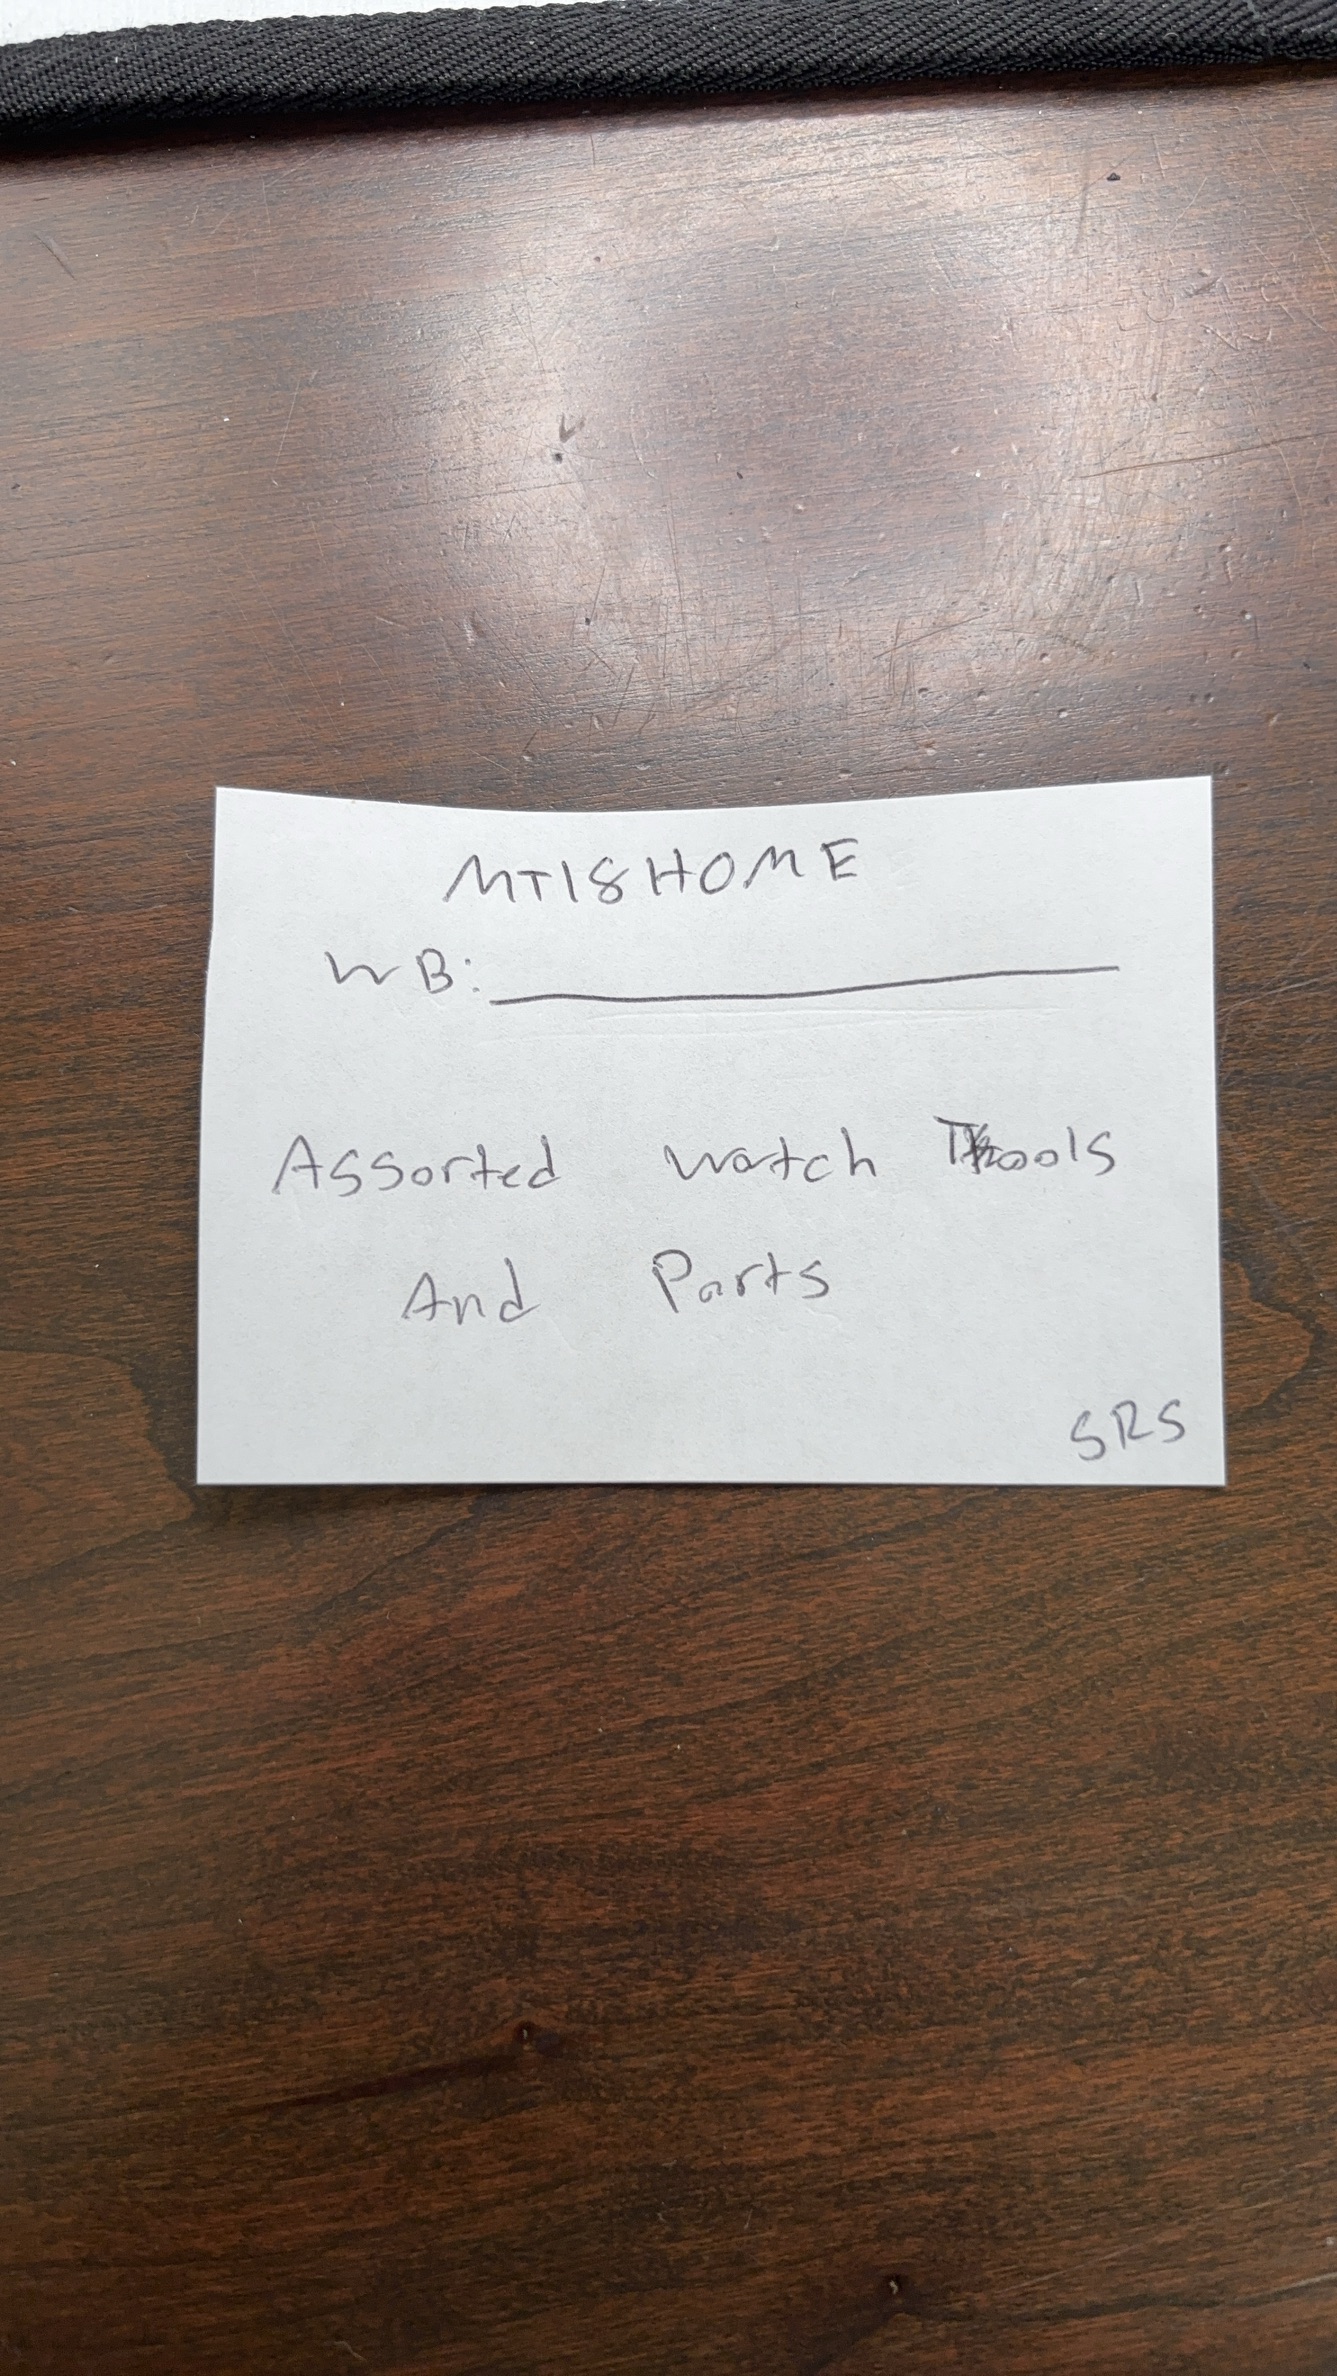 MT18HOME
WB:
Assorted watch Tools
And Parts
SRS